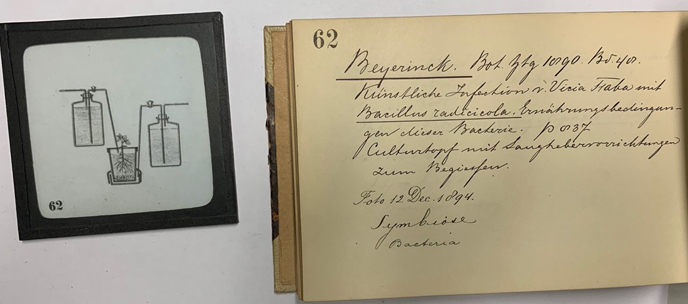 62
62
Beyerinck. Bot. Ztg 1890. Bd 48.
Künstliche Infection v. Vicia Faba mit
Bacillus radicicola. Ernährungsbedingun-
gen dieser Bacterie. p 837
Culturtopf mit Saughebervorrichtungen
zum Begiessen.
Foto 12 Dec. 1894.
Symbiose
Bacteria